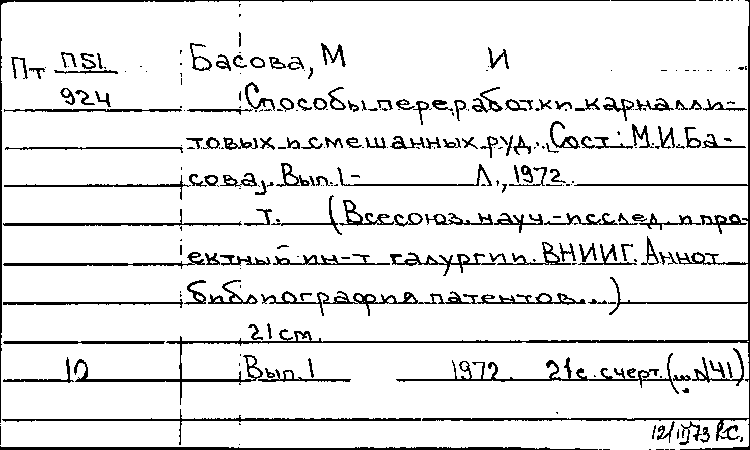 Пт П51 Басова, М И
924 Способы переработки карналли-
товых и смешанных руд. Сост: М.И.Ба-
сова, Вып. 1- Л., 1972.
т. (Всесоюз. науч.-исслед. и про-
ектный ин-т галургии. ВНИИГ. Аннот
библиография патентов...).
21 см.
10 Вып. 1 1972. 21с. с черт. ( №41)
12/III 73 Р.С.